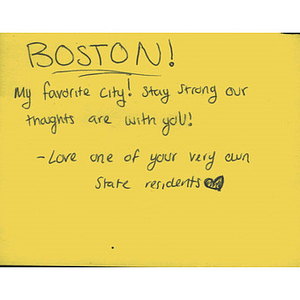 BOSTON!
My favorite city! Stay Strong our
thoughts are with you!
-Love one of your very own
State residents